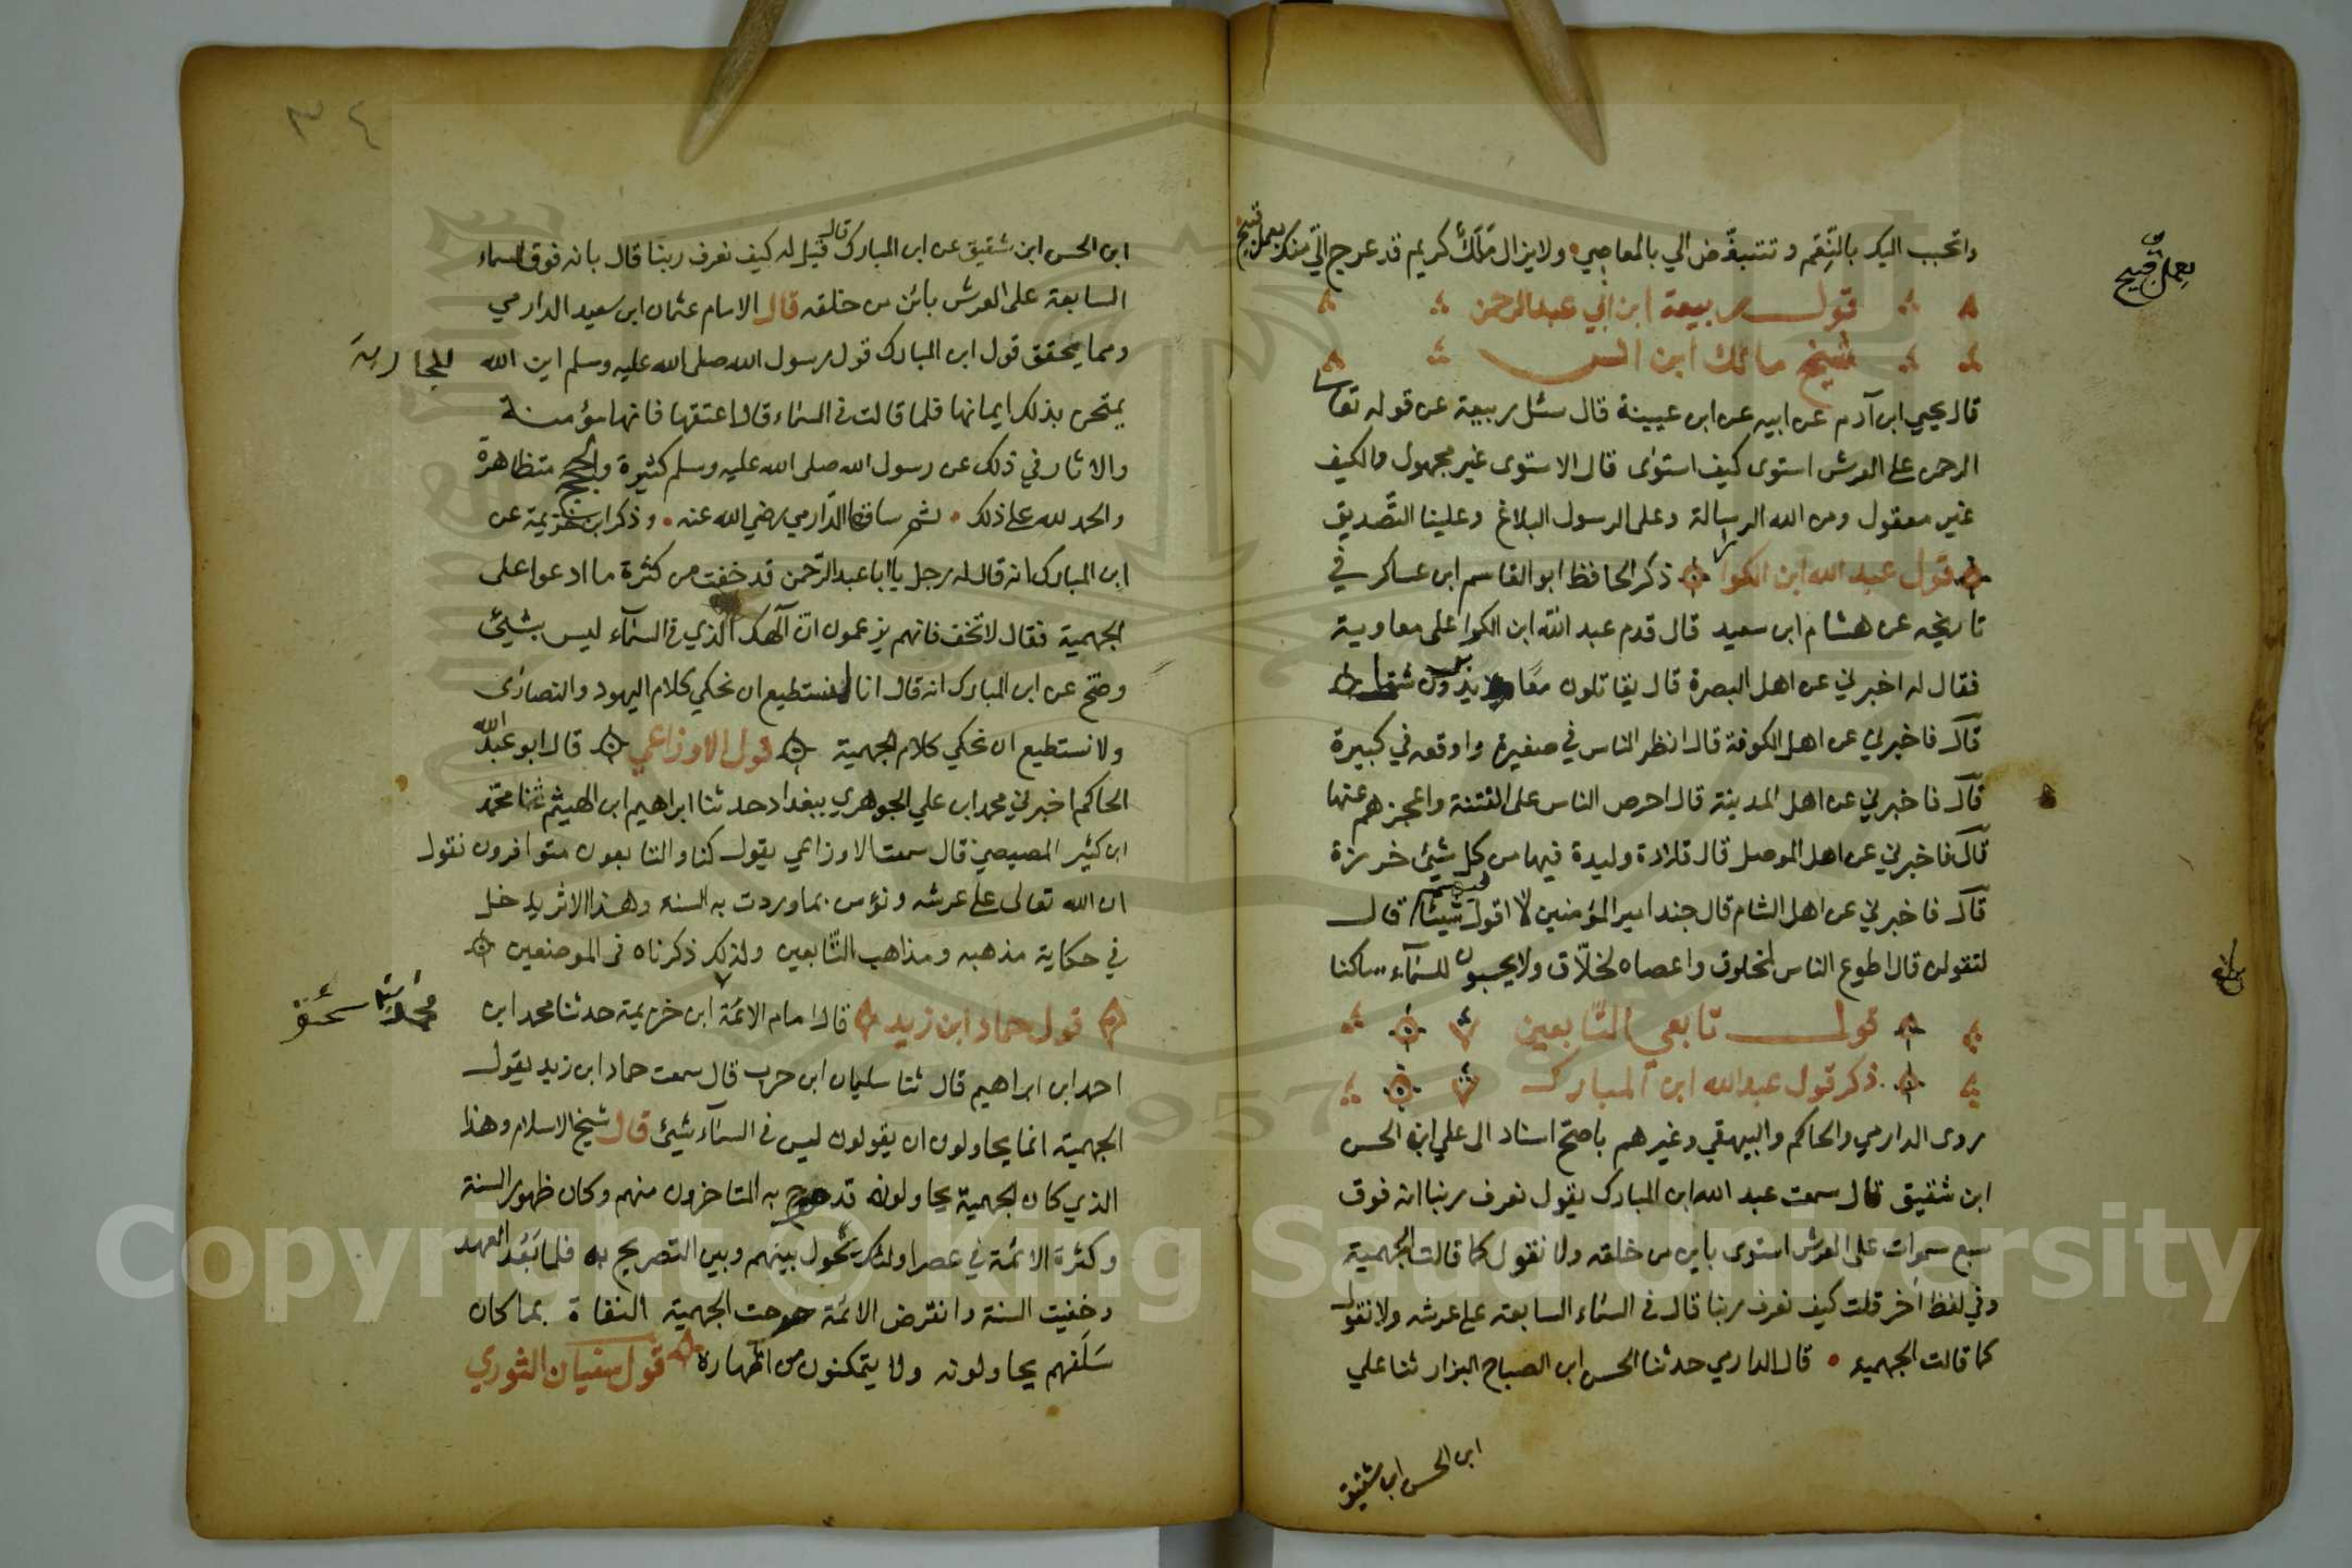 واتحبب اليك بالنِّعَم و تتبغّض الي بالمعاصي ولايزال مَلَكٌ كريم قد عرج اليّ منك بعمل قبيح
بعمل قبيح
قول ربيعة ابن ابي عبدالرحمن
شيخ مالك ابن انس
قال يحيي ابن آدم عن ابيه عن ابن عيينة قال سئل ربيعة عن قوله تعا
الرحمن على العرش استوى كيف استوى قال الاستوى غير مجهول والكيف
غير معقول ومن الله الرسالة وعلى الرسول البلاغ وعلينا التّصديق
قول عبد الله ابن الكوا ذكر الحافظ ابو القاسم ابن عساكر في
تاريخه عن هشام ابن سعيد قال قدم عبد الله ابن الكوا على معاوية
فقال له اخبرني عن اهل البصرة قال يقاتلون معًا ويدبرون شتى
قال فاخبرني عن اهل الكوفة قال انظر الناس في صغيرة واوقعه في كبيرة
قال فاخبرني عن اهل المدينة قال احرص الناس على الفتنة واعجزهم عنها
قال فاخبرني عن اهل الموصل قال قلادة وليدة فيها من كل شيئ خرزة
قال فاخبرني عن اهل الشام قال جند امير المؤمنين لا اقول فيهم شيئا قال
لتقولن قال اطوع الناس لمخلوق واعصاه لخلّاق ولا يحسبون للسماء ساكنا
قول تابعي التّابعين
ذكر قول عبد الله ابن المبارك
روى الدارمي والحاكم والبيهقي وغيرهم باصح اسناد الى علي ابن الحسن
ابن شقيق قال سمعت عبد الله ابن المبارك يقول نعرف ربنا انه فوق
سبع سموات على العرش استوى باين من خلقه ولا نقول كما قالت الجهمية
وفي لفظ آخر قلت كيف نعرف ربنا قال في السماء السابعة على عرشه ولا نقول
كما قالت الجهمية قال الدارمي حدثنا الحسن ابن الصباح البزار ثنا علي
ابن الحسن ابن شقيق
٣٤
ابن الحسن ابن شقيق عن ابن المبارك قال قيل له كيف نعرف ربنا قال بانه فوق السماء
السابعة على العرش بائن من خلقه قال الامام عثمان ابن سعيد الدارمي
ومما يحقق قول ابن المبارك قول رسول الله صلى الله عليه وسلم اين الله
للجارية
يمتحن بذلك ايمانها فلما قالت في السماء قال اعتقها فانها مؤمنة
والاثار في ذلك عن رسول الله صلى الله عليه وسلم كثيرة والحجج متظاهرة
والحمد لله على ذلك ثم ساقها الدّارمي رضي الله عنه وذكر ابن خزيمة عن
ابن المبارك انه قال له رجل يا ابا عبد الرّحمن قد خفت من كثرة ما ادعوا على
الجهمية فقال لا تخف فانهم يزعمون انّ آلهك الذي في السمآء ليس بشيئ
وصّح عن ابن المبارك انه قال انا لنستطيع ان نحكي كلام اليهود والنصارى
ولا نستطيع ان نحكي كلام الجهمية قول الاوزاعي قال ابو عبد الله
الحاكم اخبرني محمد ابن علي الجوهري ببغداد حدثنا ابراهيم ابن الهيثم ثنا محمّد
ابن كثير المصيصي قال سمعت الاوزاعي يقول كنا والتابعون متوافرون نقول
ان الله تعالى على عرشه ونؤمن بما وردت به السنة وهذا الاثر يدخل
في حكاية مذهبه ومذاهب التّابعين ولذلك ذكرناه في الموضعين
قول حماد ابن زيد قال امام الائمة ابن خزيمة حدثنا محمد ابن
احمد ابن ابراهيم قال ثنا سليمان ابن حرب قال سمعت حماد ابن زيد يقول
الجهمية انما يحاولون ان يقولون ليس في السمآء شيئ قال شيخ الاسلام وهذا
الذي كان الجهمية يحاولونه قد صرح به المتاخرون منهم وكان ظهور السنة
وكثرة الائمة في عصر اولئك يحول بينهم وبين التصريح به فلما بَعُد العهد
وخفيت السنة وانقرض الائمة صرحت الجهمية النفاة بما كان
سَلَفهم يحاولونه ولا يتمكنون من اظهاره قول سفيان الثوري